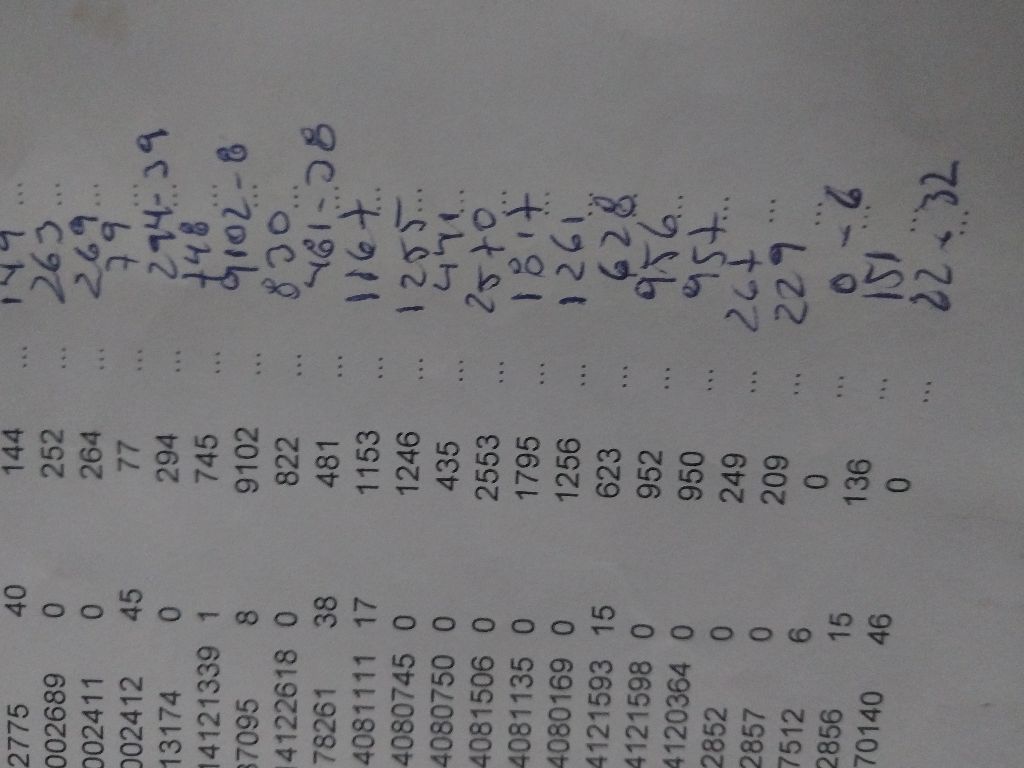 2775 40 144 ... 149 ...
002689 0 252 ... 263 ...
002411 0 264 ... 269 ...
002412 45 77 ... 79 ...
13174 0 294 ... 294-39 ...
14121339 1 745 ... 748 ...
37095 8 9102 ... 9102-8 ...
14122618 0 822 ... 830 ...
78261 38 481 ... 481-38 ...
4081111 17 1153 ... 1167 ...
4080745 0 1246 ... 1255 ...
4080750 0 435 ... 441 ...
4081506 0 2553 ... 2570 ...
4081135 0 1795 ... 1817 ...
4080169 0 1256 ... 1261 ...
4121593 15 623 ... 628 ...
4121598 0 952 ... 956 ...
4120364 0 950 ... 957 ...
2852 0 249 ... 267 ...
2857 0 209 ... 229 ...
7512 6 0 ... 0-6 ...
2856 15 136 ... 151 ...
70140 46 0 ... 22-32 ...